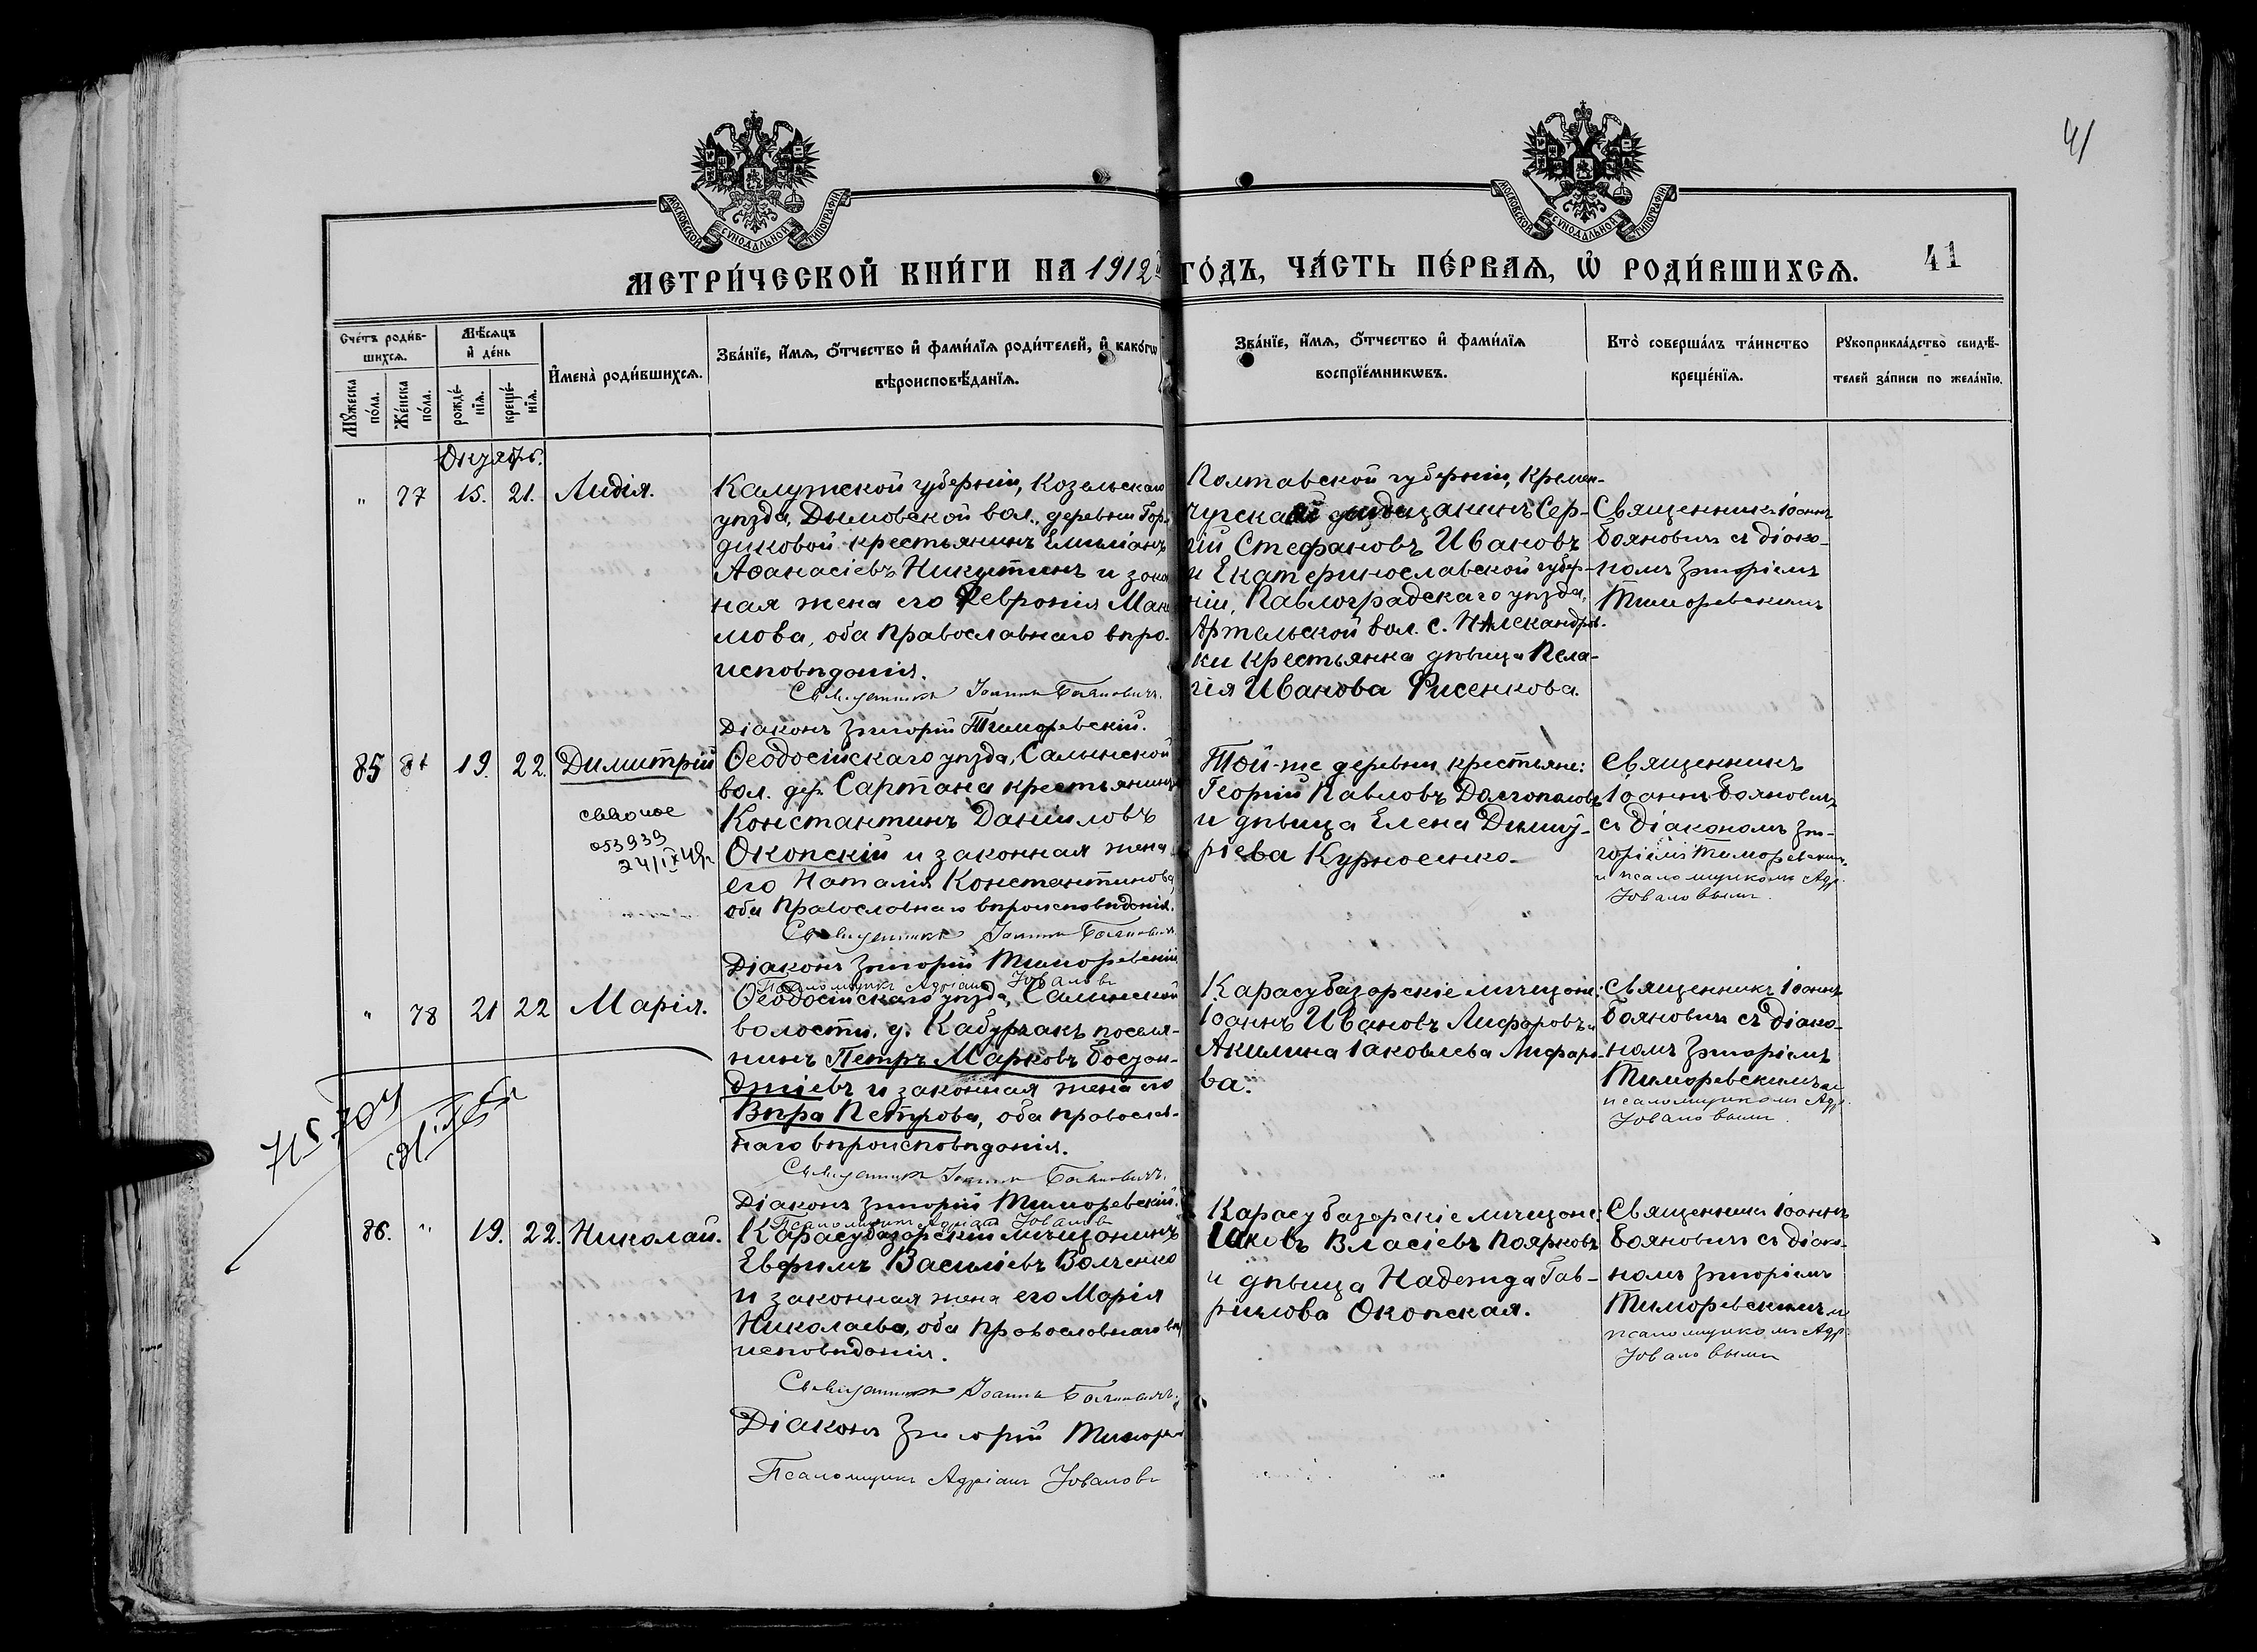 41
МОСКОВСКОЙ СѴНОДАЛЬНОЙ ТИПОГРАФІИ
МОСКОВСКОЙ СѴНОДАЛЬНОЙ ТИПОГРАФІИ
МЕТРИ́ЧЕСКОЙ КНИ́ГИ НА 1912й ГО́ДЪ, ЧА́СТЬ ПЕ́РВАѦ, Ѡ РОДИ́ВШИХСѦ.
41
Сче́тъ роди́в-
шихсѧ.
Мѣ́сѧцъ
и де́нь
Имена̀ роди́вшихсѧ.
Зва́нїе, и́мѧ, о́тчество и фами́лїѧ роди́телей, и како́гѡ
вѣроисповѣ́данїѧ.
Зва́нїе, и́мѧ, о́тчество и фами́лїѧ
воспрїе́мникѡвъ.
Кто̀ соверша́лъ та́инство
креще́нїѧ.
Рꙋкоприкла́дство свидѣ́-
телей за́писи по жела́нїю.
Мꙋ́жеска
по́ла.
Же́нска
по́ла.
рожде́-
нїѧ.
креще́-
нїѧ.
Октябрь.
" 77 15. 21. Лидія.
Калужской губерніи, Козельскаго
уѣзда, Дымовской вол., деревни Гор-
диковой крестьянинъ Емиліанъ
Аѳанасіевъ Никитинъ и закон
ная жена его Февронія
мова, оба православнаго вѣро-
исповѣданія.
Священникъ Іоаннъ Бояновичъ.
Діаконъ Григорій Тиморевскій.
Полтавской губерніи, Кремен-
Сер-
гій Стефановъ Ивановъ
и Екатеринославской губер-
ніи, Павлоградскаго уѣзда,
Артельской вол. с.
ки крестьянка дѣвица Пела-
гія Иванова Фисенкова.
Священникъ Іоаннъ
Бояновичъ съ діако-
номъ Григоріемъ
Тиморевскимъ
85 19. 22. Димитрій
053939
24/IX
Ѳеодосійскаго уѣзда, Салынской
вол. дер. Сартана крестьянинъ
Константинъ Даниловъ
Окопскій и законная жена
его Наталія Константинова,
оба православнаго вѣроисповѣданія.
Священникъ Іоаннъ Бояновичъ
Діаконъ Григорій Тиморевскій
Псаломщикъ Адріанъ Юваловъ
Той-же деревни крестьяне:
Георгій Павловъ Долгополовъ
и дѣвица Елена Димит-
ріева Курносенко.
Священникъ
Іоаннъ Бояновичъ
съ діакономъ Гри-
горіемъ Тиморевским.
и псаломщикомъ Адр.
Юваловымъ.
" 78 21 22 Марія.
Ѳеодосійскаго уѣзда, Салынской
волости, д. Кабурчакъ поселя-
нинъ Петръ Марковъ Бояжи-
джіевъ и законная жена его
Вѣра Петрова, оба православ-
наго вѣроисповѣданія.
Священникъ Іоаннъ Бояновичъ.
Діаконъ Григорій Тиморевскій.
Псаломщикъ Адріанъ Юваловъ
Карасубазарскіе мѣщане:
Іоаннъ Ивановъ Лифаровъ и
Акилина Іаковлева Лифаро-
ва.
Священникъ Іоаннъ
Бояновичъ съ діако-
номъ Григоріемъ
Тиморевскимъ и
псаломщикомъ Адр.
Юваловымъ.
86. " 19. 22. Николай.
Карасубазарскій мѣщанинъ
Евфимъ Василіевъ Волченко
и законная жена его Марія
Николаева, оба православнаго вѣ
исповѣданія.
Священникъ Іоаннъ Бояновичъ.
Діаконъ Григорій Тиморев
Псаломщикъ Адріанъ Юваловъ
Карасубазарскіе мѣщане:
Іаковъ Власіевъ Поярковъ
и дѣвица Надежда Гав-
рилова Окопская.
Священникъ Іоаннъ
Бояновичъ съ діако-
номъ Григоріемъ
Тиморевскимъ и
псаломщикомъ Адр.
Юваловымъ